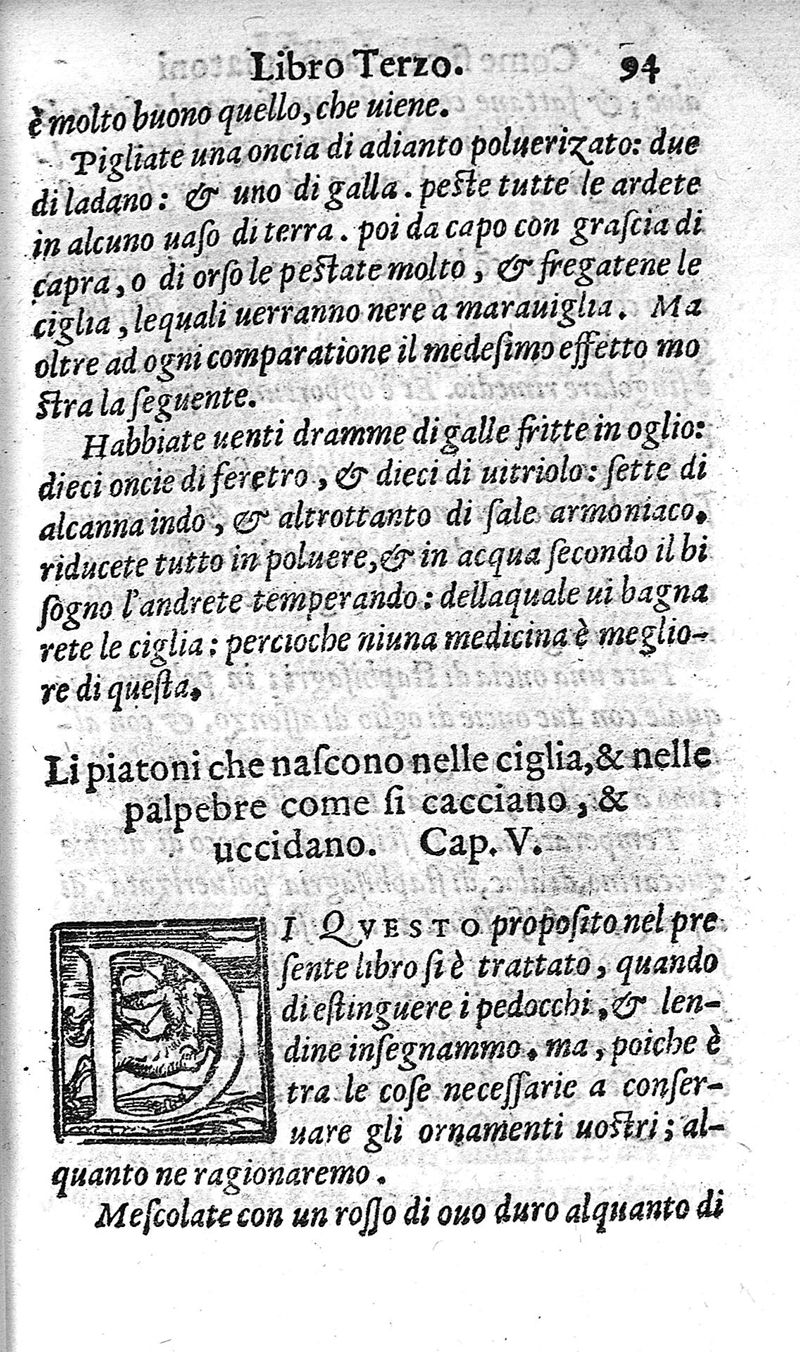 Libro Terzo. 94
è molto buono quello, che uiene.
Pigliate una oncia di adianto poluerizato: due
di ladano: & uno di galla. peſte tutte le ardete
in alcuno uaſo di terra. poi da capo con graſcia di
capra, o di orſo le peſtate molto, & fregatene le
ciglia, lequali uerranno nere a marauiglia. Ma
oltre ad ogni comparatione il medeſimo effetto mo
ſtra la ſeguente.
Habbiate uenti dramme di galle fritte in oglio:
dieci oncie di feretro, & dieci di uitriolo: ſette di
alcanna indo, & altrottanto di ſale armoniaco.
riducete tutto in poluere, & in acqua ſecondo il bi
ſogno l'andrete temperando: dellaquale ui bagna
rete le ciglia: percioche niuna medicina è meglio-
re di queſta.
Li piatoni che naſcono nelle ciglia, & nelle
palpebre come ſi cacciano, &
uccidano. Cap. V.
DI QVESTO propoſito nel pre
ſente libro ſi è trattato, quando
di eſtinguere i pedocchi, & len-
dine inſegnammo. ma, poiche è
tra le coſe neceſſarie a conſer-
uare gli ornamenti uoſtri; al-
quanto ne ragionaremo.
Meſcolate con un roſſo di ouo duro alquanto di